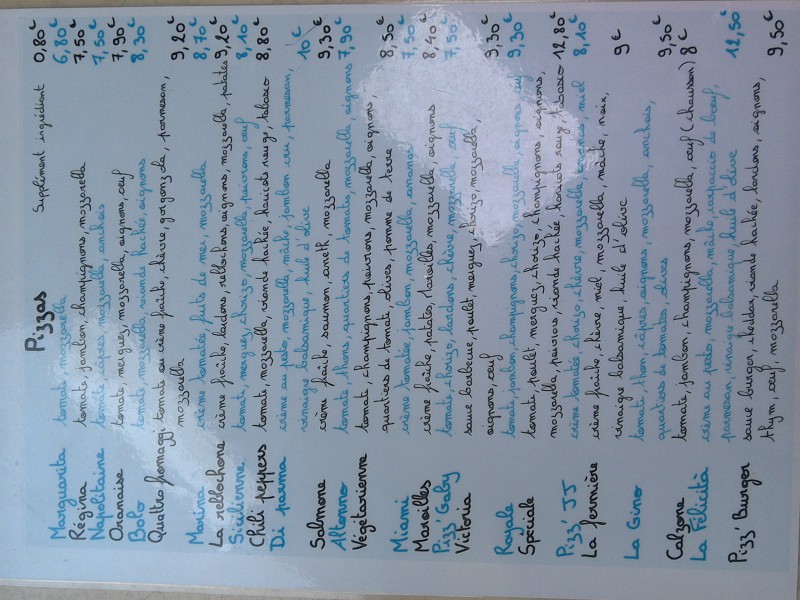 Pizzas Supplément ingrédient 0,80€
Marguarita tomate, mozzarella 6,80€
Régina tomate, jambon, champignons, mozzarella 7,50€
Napolitaine tomate, câpres, mozzarella, anchois 7,50€
Oranaise tomate, merguez, mozzarella, oignons, œuf 7,90€
Bolo tomate, mozzarella, viande hachée, oignons 8,30€
Quattro fromaggi tomate ou crème fraîche, chèvre, gorgonzola, parmesan,
mozzarella 9,20€
Marina crème tomatée, fruits de mer, mozzarella 8,70€
La reblochone crème fraîche, lardons, reblochons, oignons, mozzarella, patates 9,20€
Sicilienne tomate, merguez, chorizo, mozzarella, poivrons, œuf 8,10€
Chili peppers tomate, mozzarella, viande hachée, haricots rouge, tabasco 8,80€
Di parma crème au pesto, mozzarella, mâche, jambon cru, parmesan,
vinaigre balsamique, huile d'olive 10€
Salmone crème fraîche, saumon, aneth, mozzarella 9,30€
Altonno tomate, thons, quartiers de tomates, mozzarella, oignons 7,90€
Végétarienne tomate, champignons, poivrons, mozzarella, oignons,
quartiers de tomate, olives, pomme de terre 8,50€
Miami crème tomatée, jambon, mozzarella, ananas 7,50€
Maroilles crème fraîche, patates, Maroilles, mozzarella, oignons 8,40€
Pizz' Gaby tomate, chorizo, lardons, chèvre, mozzarella, œuf 7,50€
Victoria sauce barbecue, poulet, merguez, chorizo, mozzarella,
oignons, œuf 9,30€
Royale tomate, jambon, champignons, chorizo, mozzarella, oignons, œuf 9,30€
Spéciale tomate, poulet, merguez, chorizo, champignons, oignons,
mozzarella, poivrons, viande hachée, haricots rouge, tabasco 12,80€
Pizz' JJ crème tomatée, chorizo, chèvre, mozzarella, ananas, miel 8,10€
La fermière crème fraîche, chèvre, miel, mozzarella, mâche, noix,
vinaigre balsamique, huile d'olive 9€
La Gino tomate, thon, câpres, oignons, mozzarella, anchois,
quartiers de tomates, olives 9,50€
Calzone tomate, jambon, champignons, mozzarella, œuf (chausson) 8€
La Félicità crème au pesto, mozzarella, mâche, carpaccio de bœuf,
parmesan, vinaigre balsamique, huile d'olive 12,50€
Pizz' Burger sauce burger, cheddar, viande hachée, lardons, oignons,
thym, œuf, mozzarella 9,50€